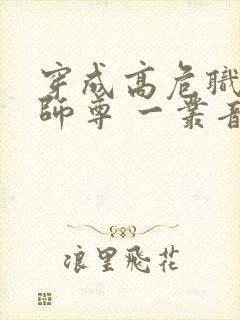 穿成高危職
師尊 一叢音
浪里飛花